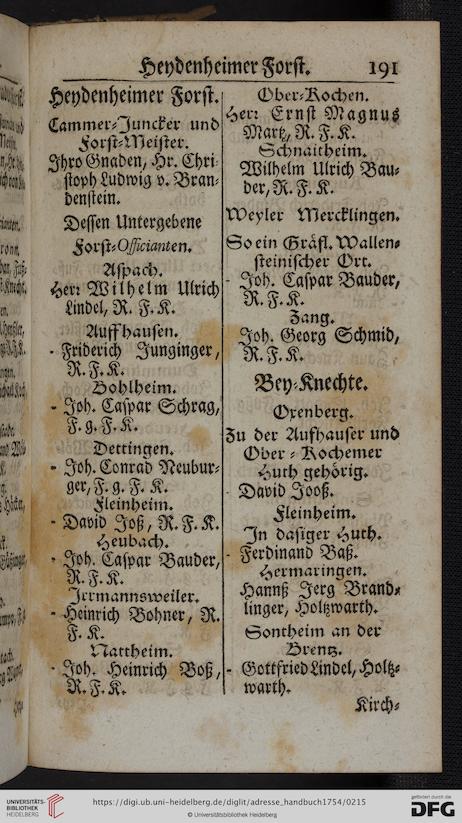 Heydenheimer Forst. 191
Heydenheimer Forst.
Cammer-Juncker und
Forst-Meister.
Ihro Gnaden, Hr. Chri-
stoph Ludwig v. Bran-
denstein.
Dessen Untergebene
Forst-Officianten.
Aspach.
Herr Wilhelm Ulrich
Lindel, R. F. K.
Auffhausen.
- Friderich Junginger,
R. F. K.
Bohlheim.
- Joh. Caspar Schrag,
F. g. F. K.
Dettingen.
- Joh. Conrad Neubur-
ger, F. g. F. K.
Fleinheim.
- David Joß, R. F. K.
Heubach.
- Joh. Caspar Bauder,
R. F. K.
Irrmannsweiler.
- Heinrich Bohner, R.
F. K.
Nattheim.
- Joh. Heinrich Boß,
R. F. K.
Ober-Kochen.
Herr Ernst Magnus
Martz, R. F. K.
Schnaitheim.
Wilhelm Ulrich Bau-
der, R. F. K.
Weyler Mercklingen.
So ein Gräfl. Wallen-
steinischer Ort.
- Joh. Caspar Bauder,
R. F. K.
Zang.
Joh. Georg Schmid,
R. F. K.
Bey-Knechte.
Oxenberg.
Zu der Aufhauser und
Ober-Kochemer
Huth gehörig.
- David Jooß.
Fleinheim.
In dasiger Huth.
- Ferdinand Baß.
Hermaringen.
Hannß Jerg Brand-
linger, Holtzwarth.
Sontheim an der
Brentz.
- Gottfried Lindel, Holtz-
warth.
Kirch-
UNIVERSITÄTS-
BIBLIOTHEK
HEIDELBERG
https://digi.ub.uni-heidelberg.de/diglit/adresse_handbuch1754/0215
© Universitätsbibliothek Heidelberg
gefördert durch die
DFG